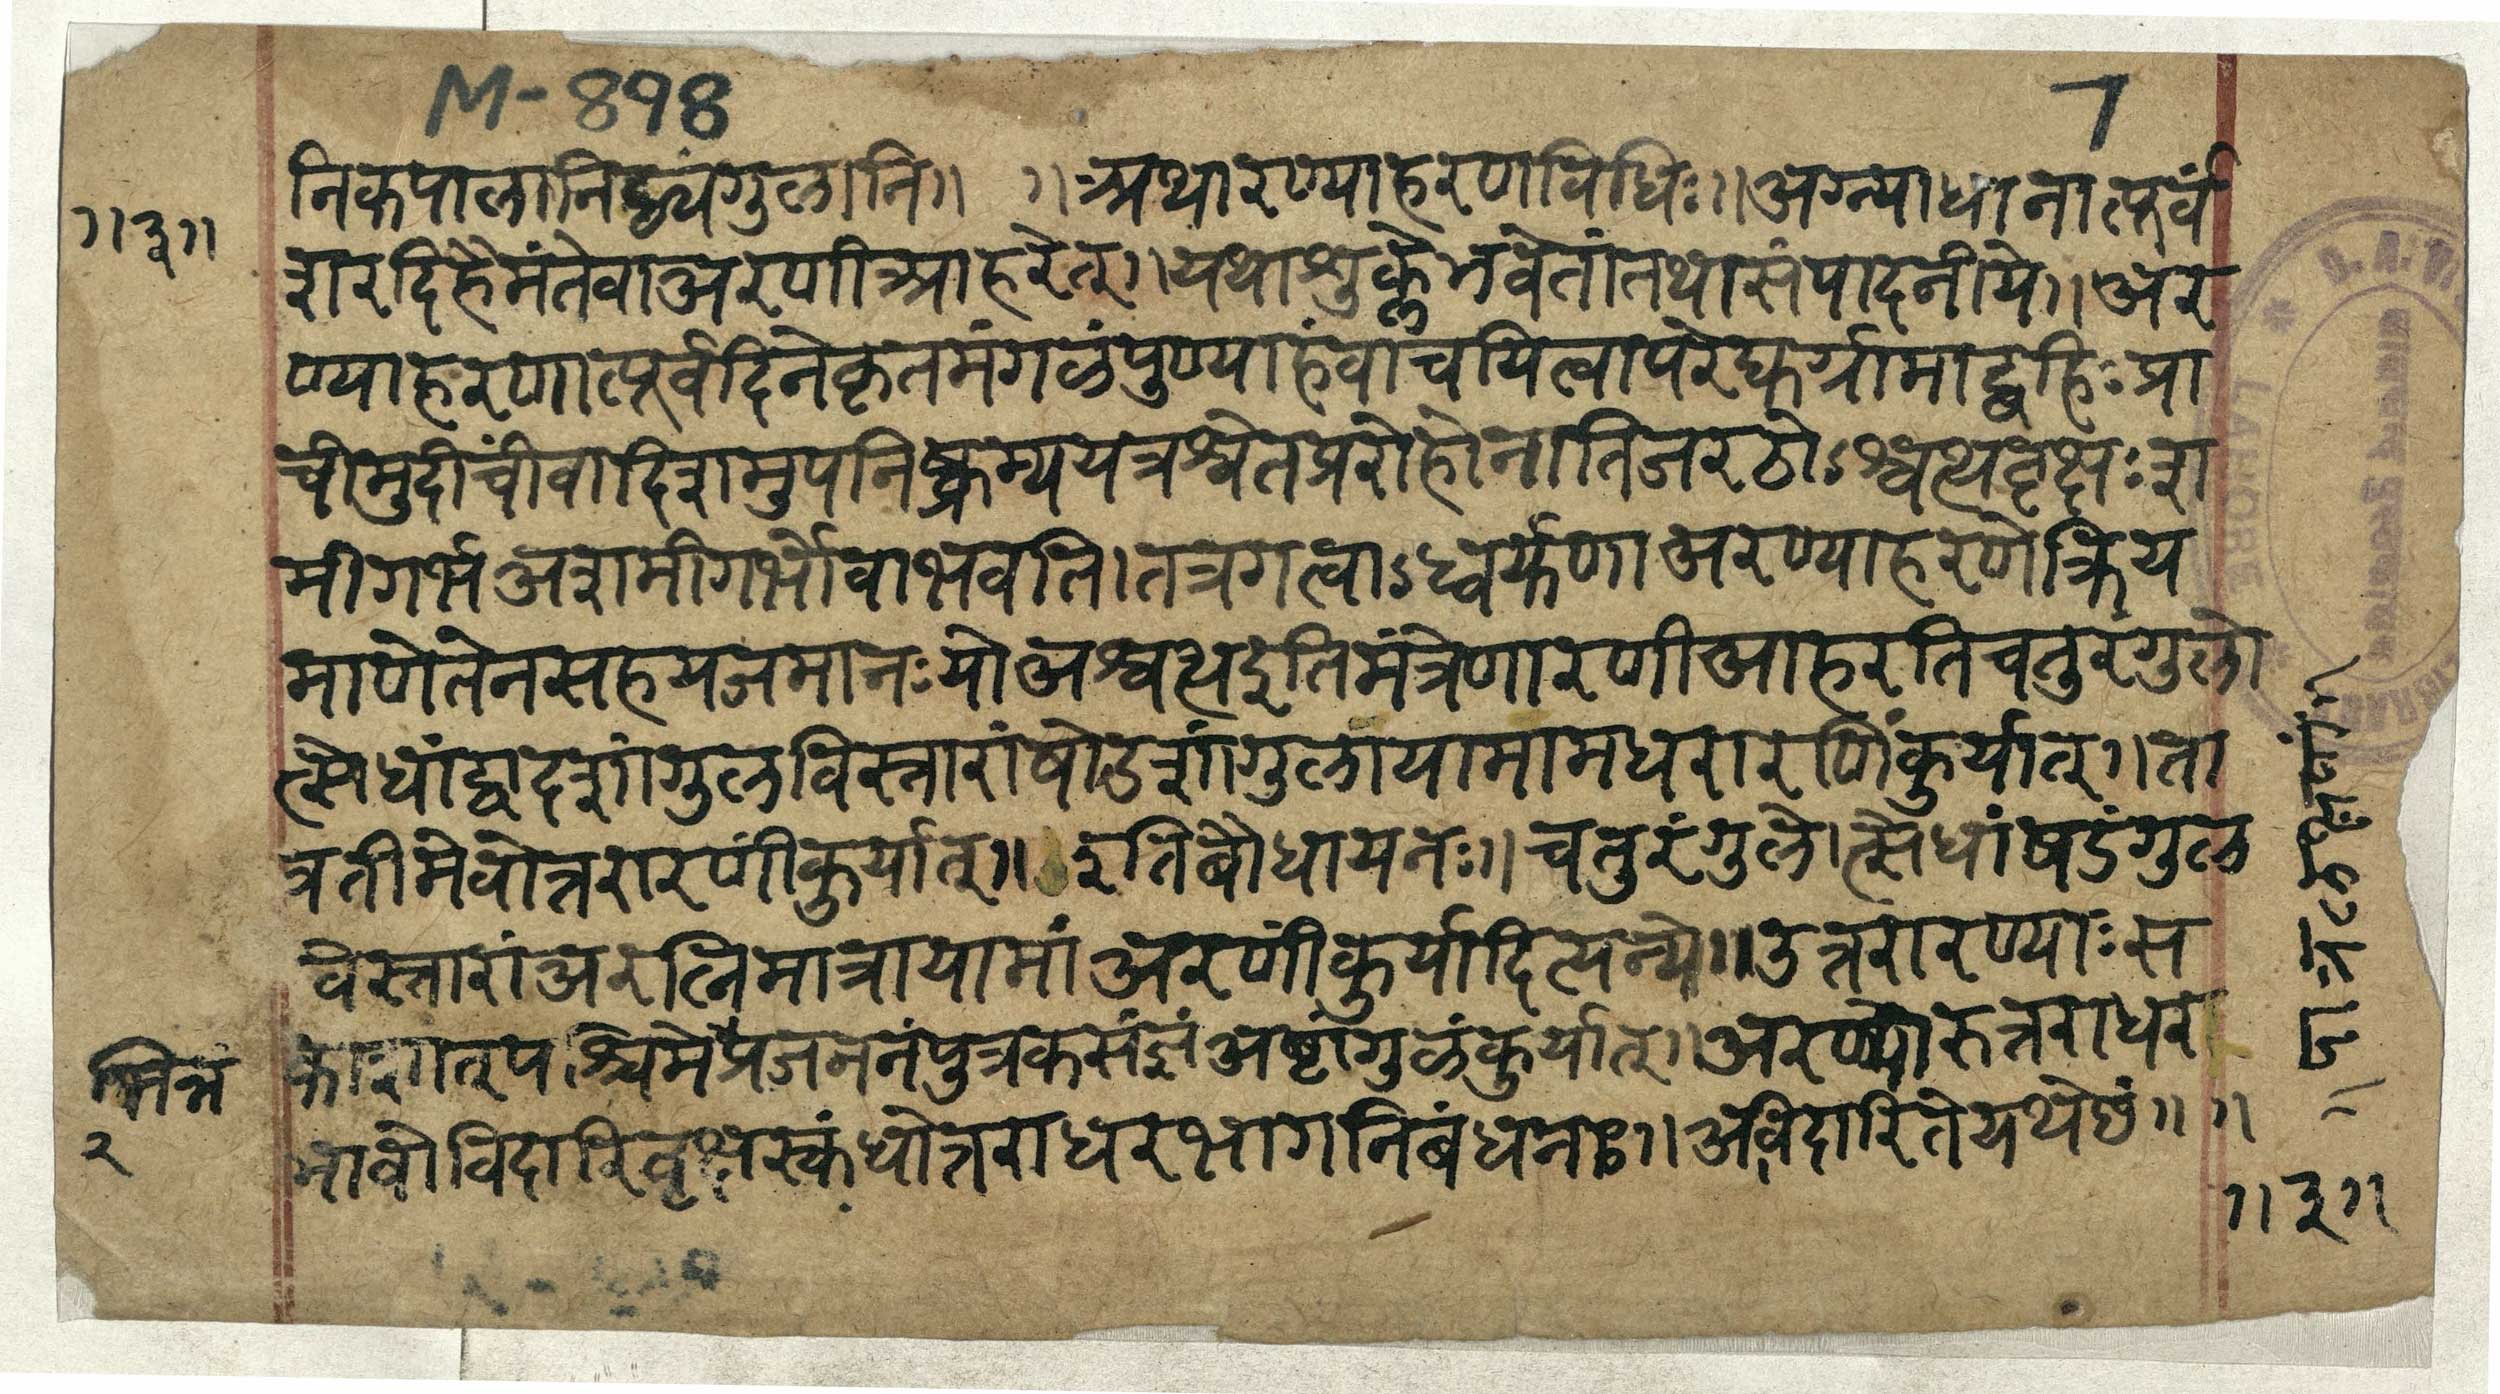 M-898
7
निकपालानिद्व्यंगुलानि॥ ॥अथारण्याहरणविधिः॥अग्न्याधानात्पूर्वं
॥३॥
शरदिहेमंतेवाअरणीआहरेत्॥यथाशुष्के भवेतांतथासंपादनीये॥अर
ण्याहरणात्पूर्वदिनेकृतमंगळंपुण्याहंवाचयित्वापरेद्युर्ग्रामाद्बहिः प्रा
चीमुदीचींवादिशमुपनिष्क्रम्ययत्रश्वेतप्ररोहोनातिजरठोऽश्वत्थवृक्षःश
मीगर्भअशमीगर्भोवाभवति।तत्रगत्वाऽध्वर्युणाअरण्याहरणेक्रिय
माणेतेनसहयजमानःयोअश्वत्थइतिमंत्रेणारणीआहरतिचतुरंगुलो
त्सेधांद्वादशांगुलविस्तारांषोडशांगुलायामामधरारणिंकुर्यात्॥ता
वतीमेवोत्तरारणींकुर्यात्॥ इतिबौधायनः॥चतुरंगुलोत्सेधांषडंगुल
विस्तारांअरत्निमात्रायामांअरणींकुर्यादित्यन्ये॥उत्तरारण्याःस
काशात्पश्चिमेप्रजननंपुत्रकसंज्ञंअष्टांगुळंकुर्यात्॥अरण्योरुत्तराधर
भिन्न
२
भावोविदारिवृक्षस्कंधोत्तराधरभागनिबंधनः॥अविदारितेयथेछं॥ ॥
॥३॥
LAHORE